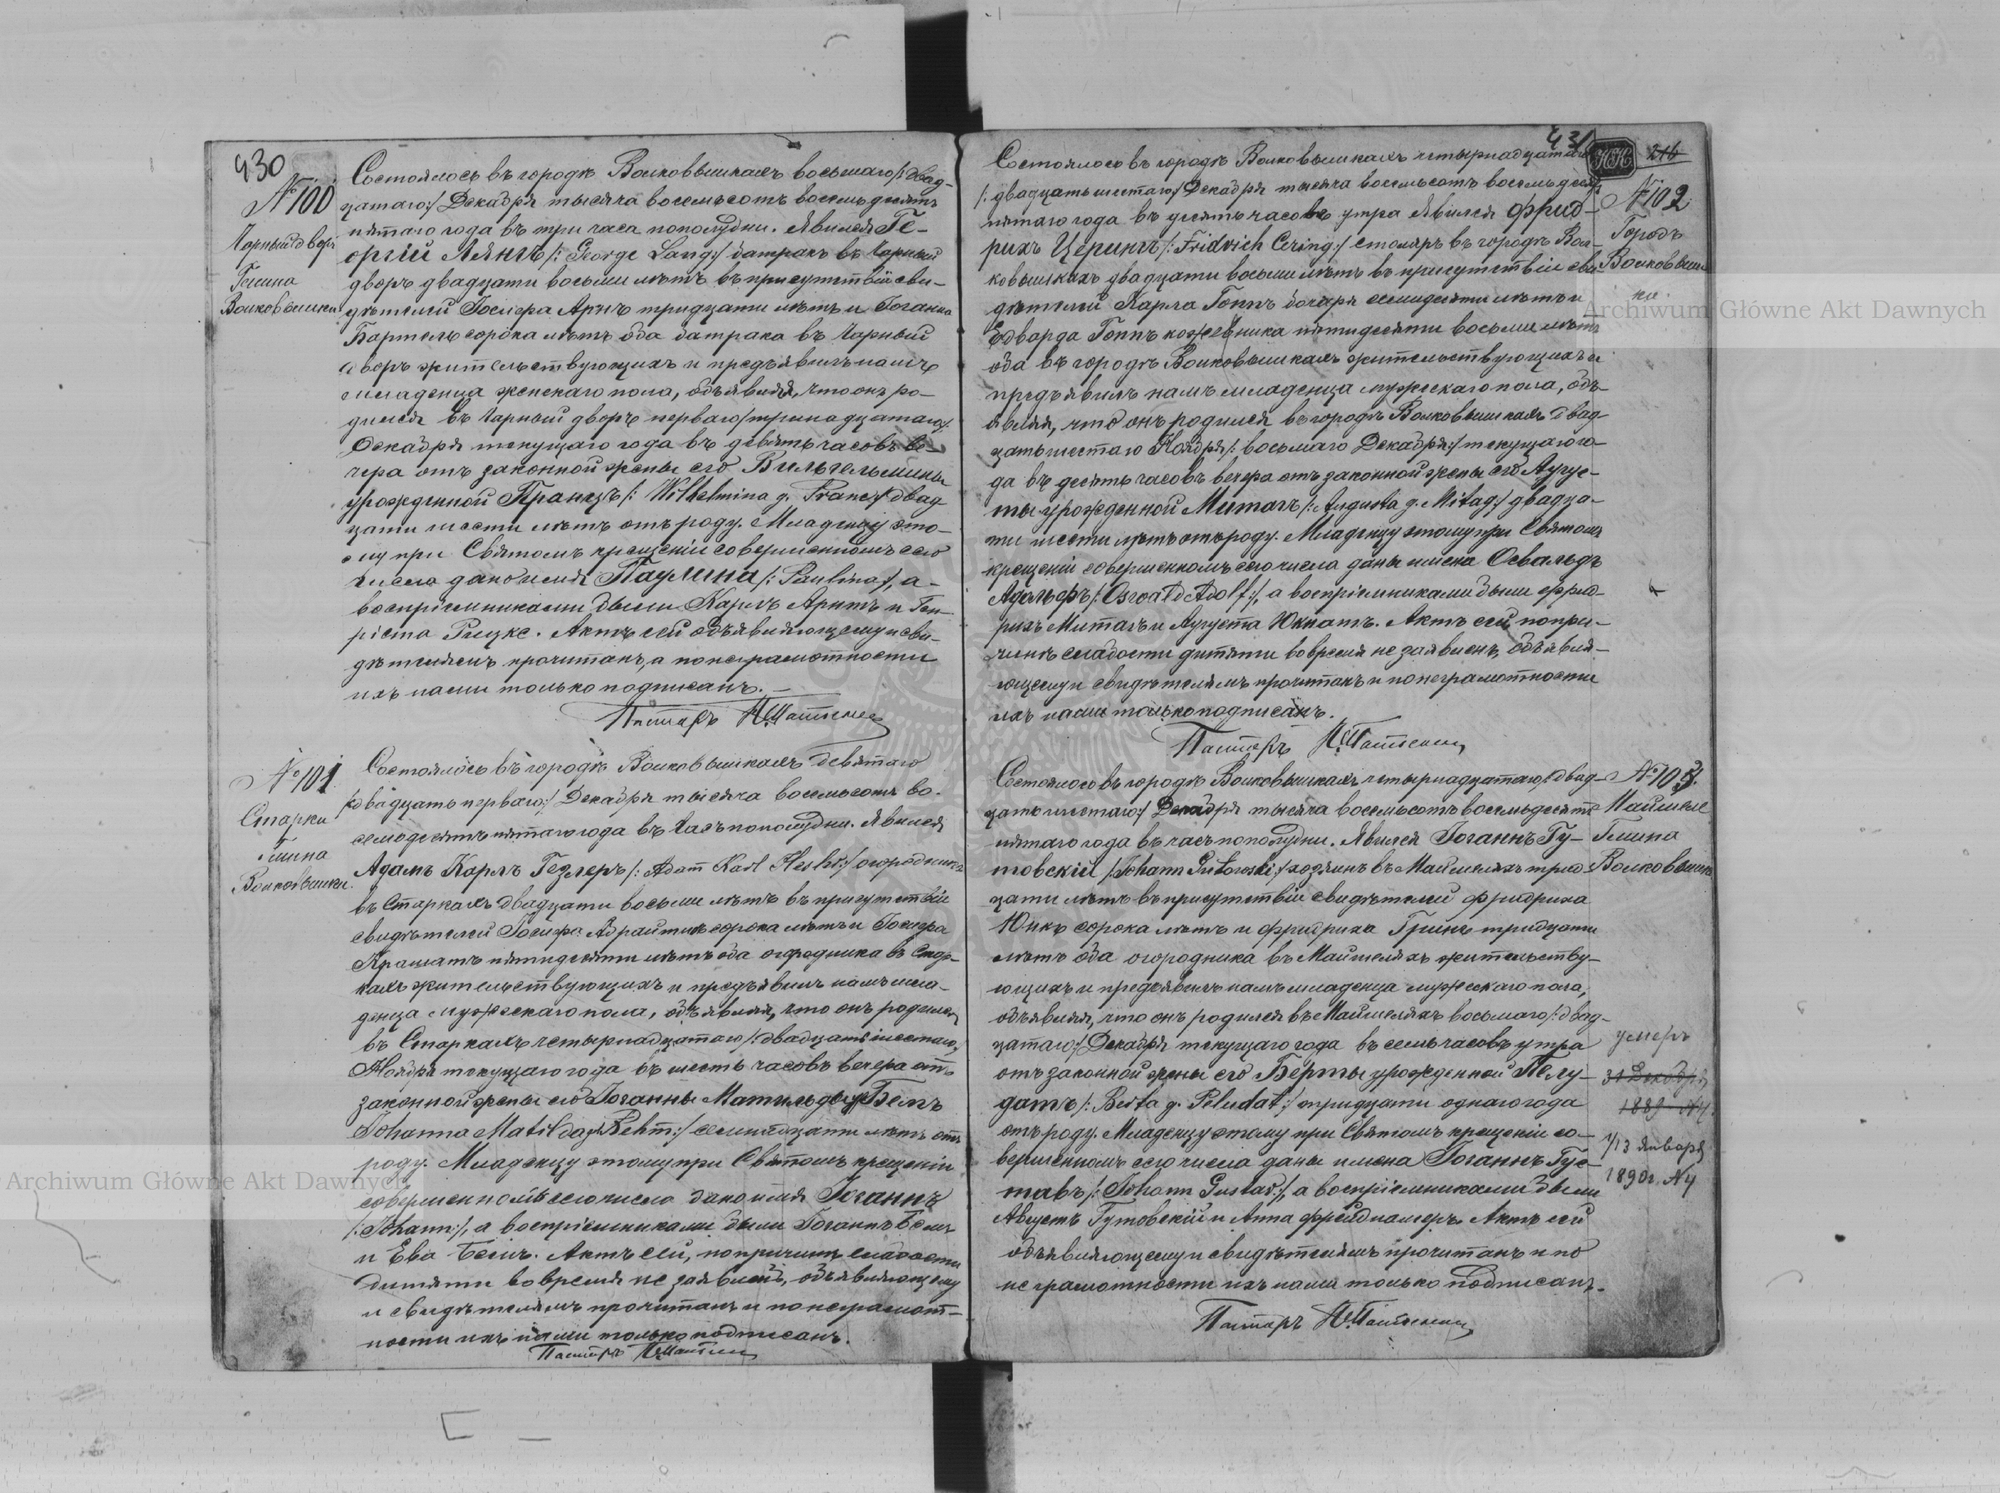 430
№ 100
Чорный дворъ
Гмина
Волковышки
Состоялось въ городѣ Волковышкахъ восьмаго /:двад-
цатаго:/ Декабря тысяча восемьсотъ восемьдесятъ
пятаго года въ три часа пополудни. Явился Ге-
оргій Лянгъ /: George Lang:/ батракъ въ Чорный
дворъ двадцати восьми лѣтъ въ присутствіи сви-
дѣтелей Іосифа Арнъ тридцати лѣтъ и Іоганна
Бартель сорока лѣтъ оба батрака въ Чорный
дворъ жительствующихъ и предъявилъ намъ
младенца женскаго пола, объявляя, что онъ ро-
дился въ Чорный дворъ перваго /тринадцатаго:/
Декабря текущаго года въ девять часовъ ве-
чера отъ законной жены его Вильгельмины
урожденной Францъ /: Wilhelmina g. Franc:/ двад-
цати шести лѣтъ отъ роду. Младенцу это-
му при Святомъ крещеніи совершенномъ сего
числа дано имя Паулина /: Paulina:/, а
воспріемниками были Карлъ Арнтъ и Ген-
ріета Рицке. Актъ сей объявляющему и сви-
дѣтелямъ прочитанъ, а по неграмотности
ихъ нами только подписанъ.
Пасторъ
№ 101
Старки
Гмина
Волковышки
Состоялось въ городѣ Волковышкахъ девятаго
/:двадцать перваго:/ Декабря тысяча восемьсотъ во-
семьдесятъ пятаго года въ часъ пополудни. Явился
Адамъ Карлъ Гезлеръ /: Adam Karl :/ огородникъ
въ Старкахъ двадцати восьми лѣтъ въ присутствіи
свидѣтелей Іосифа Адрайтисъ сорока лѣтъ и Іосифа
Краматъ пятидесяти лѣтъ оба огородника въ Стар-
кахъ жительствующихъ и предъявилъ намъ мла-
денца мужескаго пола, объявляя, что онъ родился
въ Старкахъ четырнадцатаго /:двадцать шестаго:/
Ноября текущаго года въ шесть часовъ вечера отъ
законной жены его Іоганны Матильды Бемъ
Johanna Matilda Behm:/ семнадцати лѣтъ отъ
роду. Младенцу этому при Святомъ крещеніи
совершенномъ сего числа дано имя Іоганнъ
/: Johann:/, а воспріемниками были Іоганнъ Бемъ
и Ева Бемъ. Актъ сей, по причинѣ слабости
дитяти во время не заявленъ, объявляющему
и свидѣтелямъ прочитанъ и по неграмот-
ности ихъ нами только подписанъ.
Пасторъ
431
216
№ 102
Городъ
Волковыш-
ки.
Состоялось въ городѣ Волковышкахъ четырнадцатаго
/: двадцать шестаго:/ Декабря тысяча восемьсотъ восемьдесятъ
пятаго года въ десять часовъ утра Явился Фрид-
рихъ Церингъ /: Fridrich Cering:/ столяръ въ городѣ Вол-
ковышкахъ двадцати восьми лѣтъ въ присутствіи сви-
дѣтелей Карла Гоппъ бочаря семидесяти лѣтъ и
Едварда Гоппъ кожевника пятидесяти восьми лѣтъ
оба въ городѣ Волковышкахъ жительствующихъ и
предъявилъ намъ младенца мужескаго пола, объ-
являя, что онъ родился въ городѣ Волковышкахъ двад-
цать шестаго Ноября /: восьмаго Декабря:/ текущаго го-
да въ десять часовъ вечера отъ законной жены его Аугус-
ты урожденной Митагъ /: Augusta g. Mitag:/ двадца-
ти шести лѣтъ отъ роду. Младенцу этому при Святомъ
крещеніи совершенномъ сего числа даны имена Освальдъ
Адольфъ /: Oswald Adolf:/, а воспріемниками были Фрид-
рихъ Митагъ и Аугуста Юкнатъ. Актъ сей по при-
чинѣ слабости дитяти во время не заявленъ, объявля-
ющему и свидѣтелямъ прочитанъ и по неграмотности
ихъ нами только подписанъ.
Пасторъ
№ 103.
Маймеле
Гмина
Волковышк
Состоялось въ городѣ Волковышкахъ четырнадцатаго /:двад-
цать шестаго:/ Декабря тысяча восемьсотъ восемьдесятъ
пятаго года въ часъ пополудни. Явился Іоганнъ Гу-
товскій /: Johann Gutowski:/ хозяинъ въ Маймеляхъ трид-
цати лѣтъ въ присутствіи свидѣтелей Фридриха
Юнкъ сорока лѣтъ и Фридриха Гринъ тридцати
лѣтъ оба огородника въ Маймеляхъ жительству-
ющихъ и предъявилъ намъ младенца мужескаго пола,
объявляя, что онъ родился въ Маймеляхъ восьмаго /:двад-
цатаго:/ Декабря текущаго года въ семь часовъ утра
отъ законной жены его Берты урожденной Пелу-
датъ /: Berta g. Peludat:/ тридцати одного года
отъ роду. Младенцу этому при Святомъ крещеніи со-
вершенномъ сего числа даны имена Іоганнъ Гус-
тавъ /: Johann Gustav:/, а воспріемниками были
Августъ Гутовскій и Анна Фрейднамеръ. Актъ сей
объявляющему и свидѣтелямъ прочитанъ и по
неграмотности ихъ нами только подписанъ.
Пасторъ
умеръ
31 Декабря
1889
1/13 января
1890г. №4
Archiwum Główne Akt Dawnych
Archiwum Główne Akt Dawnych